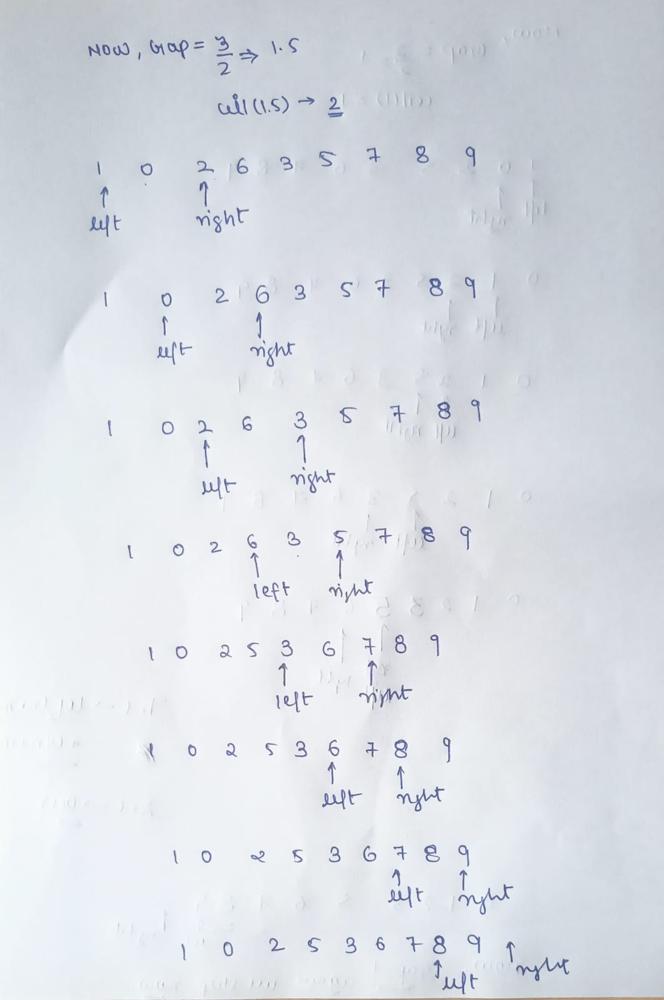 Now, Gap = 3/2 ⇒ 1.5
ceil (1.5) → 2
1 0 2 6 3 5 7 8 9
↑ ↑
left right
1 0 2 6 3 5 7 8 9
↑ ↑
left right
1 0 2 6 3 5 7 8 9
↑ ↑
left right
1 0 2 6 3 5 7 8 9
↑ ↑
left right
1 0 2 5 3 6 7 8 9
↑ ↑
left right
1 0 2 5 3 6 7 8 9
↑ ↑
left right
1 0 2 5 3 6 7 8 9
↑ ↑
left right
1 0 2 5 3 6 7 8 9
↑ ↑
left right